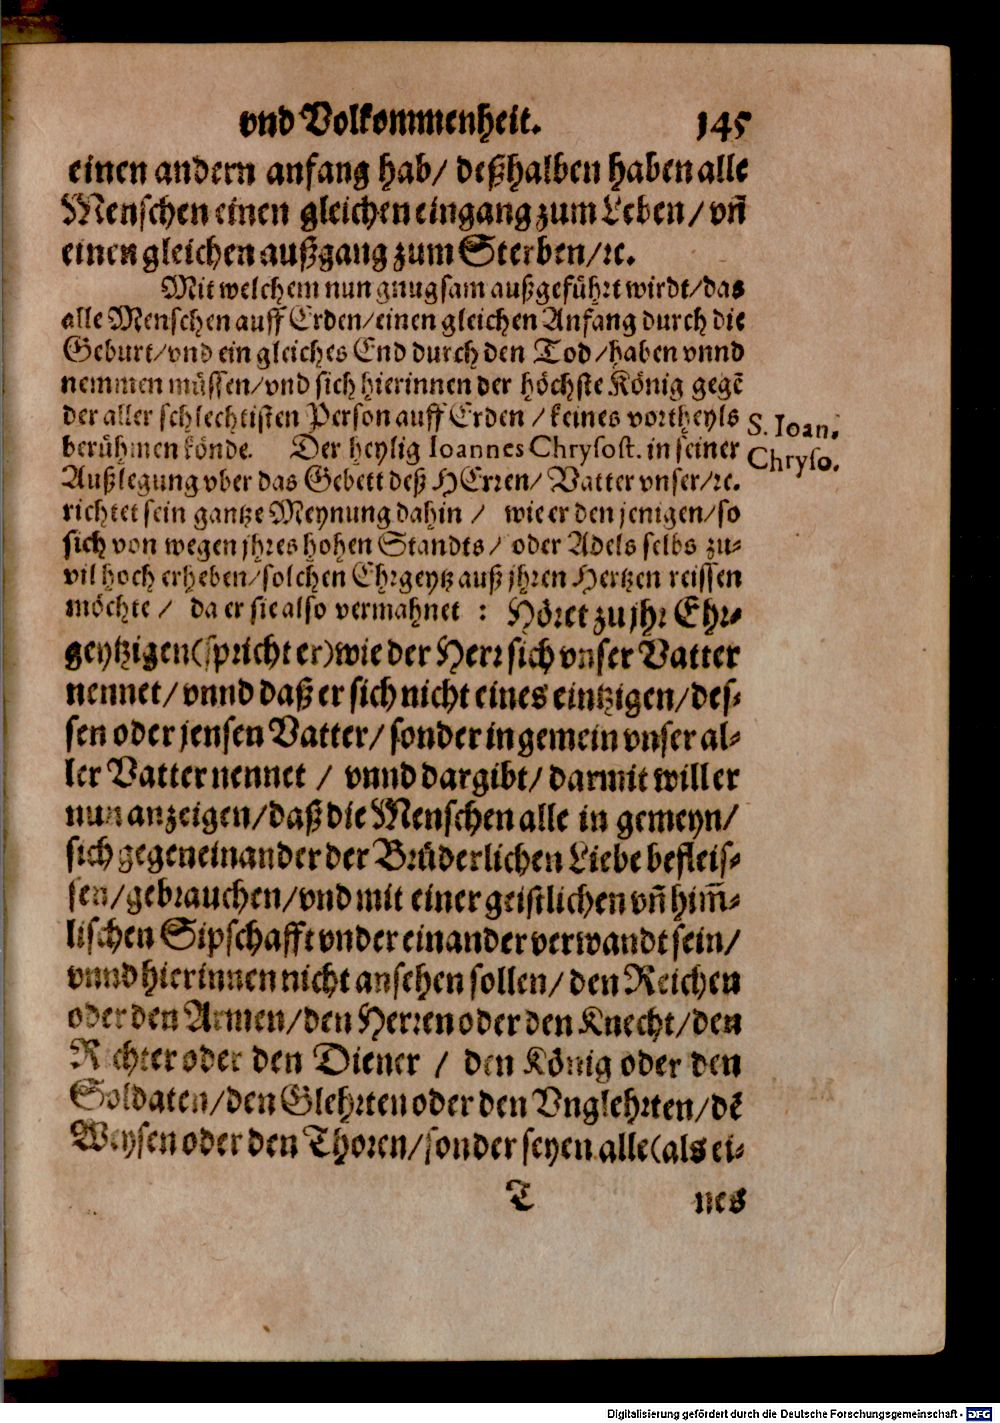 vnd Volkommenheit. 145
einen andern anfang hab/ deßhalben haben alle
Menschen einen gleichen eingang zum Leben/ vñ
einen gleichen außgang zum Sterben/ ꝛc.
Mit welchem nun gnugsam außgeführt wirdt/ das
alle Menschen auff Erden/ einen gleichen Anfang durch die
Geburt/ vnd ein gleiches End durch den Tod/ haben vnnd
nemmen müssen/ vnd sich hierinnen der höchste König gegē
der aller schlechtisten Person auff Erden / keines vortheyls
berühmen könde. Der heylig Ioannes Chrysost. in seiner
S. Ioan.
Chryso.
Außlegung vber das Gebett deß HErren/ Vatter vnser/ ꝛc.
richtet sein gantze Meynung dahin / wie er den jenigen/ so
sich von wegen jhres hohen Standts/ oder Adels selbs zu-
vil hoch erheben/ solchen Ehrgeytz auß jhren Hertzen reissen
möchte / da er sie also vermahnet : Höret zu jhr Ehr-
geytzigen (spricht er) wie der Herr sich vnser Vatter
nennet/ vnnd daß er sich nicht eines eintzigen/ des-
sen oder jensen Vatter/ sonder in gemein vnser al-
ler Vatter nennet / vnnd dargibt/ darmit will er
nun anzeigen/ daß die Menschen alle in gemeyn/
sich gegeneinander der Brüderlichen Liebe befleis-
sen/ gebrauchen/ vnd mit einer geistlichen vñ him̃-
lischen Sipschafft vnder einander verwandt sein/
vnnd hierinnen nicht ansehen sollen/ den Reichen
oder den Armen/ den Herren oder den Knecht/ den
Richter oder den Diener / den König oder den
Soldaten/ den Glehrten oder den Vnglehrten/ dē
Weysen oder den Thoren/ sonder seyen alle (als ei-
T nes
Digitalisierung gefördert durch die Deutsche Forschungsgemeinschaft - DFG